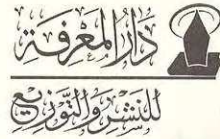 دَارُ المَعْرِفَة
لِلنَّشْرِ وَالتَّوْزِيعِ